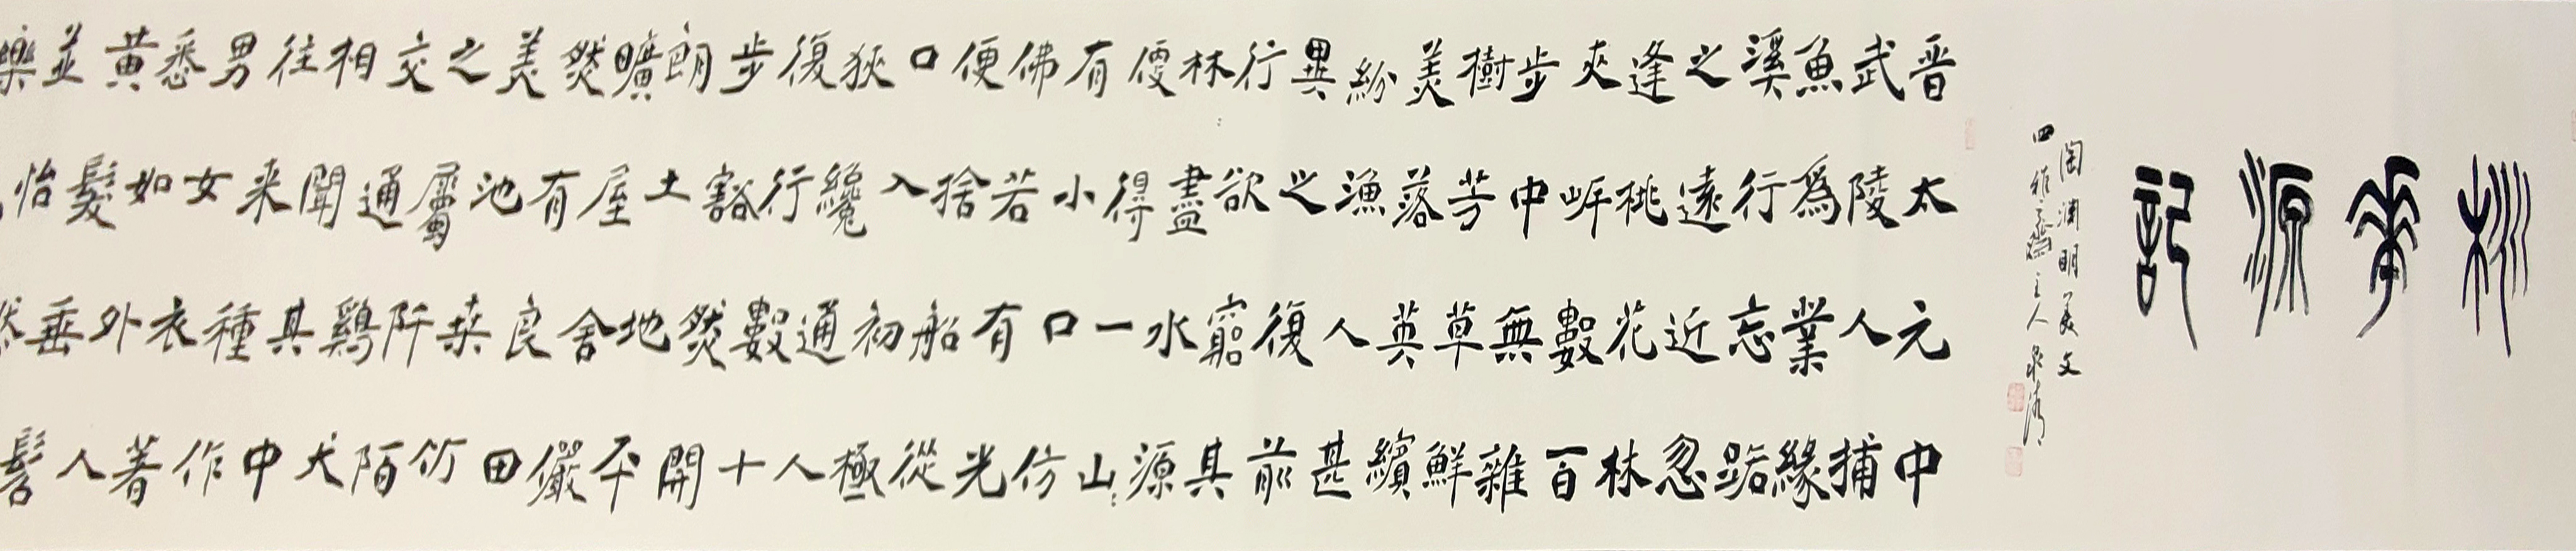 桃花源記
陶淵明美文
四雅齋主人
晋太元中
武陵人捕
魚爲業緣
溪行忘路
之遠近忽
逢桃花林
夾岍數百
步中無雜
樹芳草鮮
美落英繽
紛漁人甚
異之復前
行欲窮其
林盡水源
便得一山
有小口仿
佛若有光
便捨船從
口入初極
狹纔通人
復行數十
步豁然開
朗土地平
曠屋舍儼
然有良田
美池桑竹
之屬阡陌
交通鷄犬
相聞其中
往来種作
男女衣著
悉如外人
黄髮垂髫
並怡然
樂